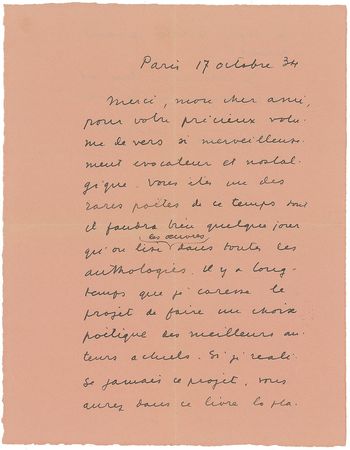 Paris 17 octobre 34
Merci, mon cher ami,
pour votre précieux volu-
me de vers si merveilleuse-
ment évocateur et nostal-
gique. Vous êtes un des
rares poètes de ce temps dont
il faudra bien quelque jour
les œuvres
qu'on lise dans toutes les
anthologies. Il y a long-
temps que je caresse le
projet de faire un choix
poétique des meilleurs au-
teurs actuels. Si je réali-
se jamais ce projet, vous
aurez dans ce livre la pla-